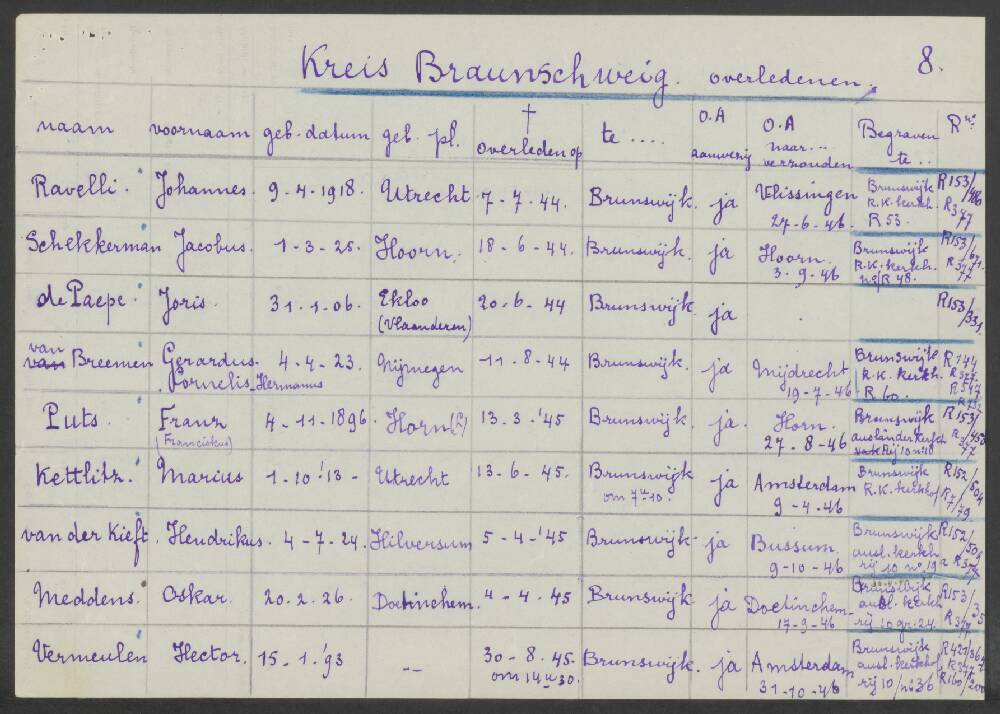 Kreis Braunschweig. overledenen. 8.
naam voornaam geb. datum geb. pl. † overleden op te .... O.A aanwezig O.A naar... verzonden Begraven te .. R nr.
Ravelli. Johannes. 9-4-1918. Utrecht. 7-7-44. Brunswijk. ja Vlissingen 27-6-46 Brunswijk R.K. kerkh. R 53. R153/486 R377
Schekkerman Jacobus. 1-3-25. Hoorn. 18-6-44. Brunswijk. ja Hoorn. 3-9-46 Brunswijk R.K. kerkh. R 48. R153/671. R377
de Paepe. Joris. 31.1.06. Ekloo (Vlaanderen) 20-6-44 Brunswijk. ja R153/331.
van Breemen Gerardus Cornelis Hermanus 4-4-23. Nijmegen 11-8-44 Brunswijk. ja Mijdrecht 19-7-46 Brunswijk R.K. kerkh. R 60. R144 R377
Puts. Franz (Franciskus) 4-11-1896. Horn (L) 13.3-'45 Brunswijk. ja. Horn. 27-8-46 Brunswijk ausländerkerkh Rij 10 n° 10 R153/458
Kettlitz. Marius 1-10-'13- Utrecht 13-6-45. Brunswijk om 7u10. ja Amsterdam 9-4-46 Brunswijk R.K. kerkhof R152/504
van der Kieft. Hendrikus. 4-7-24. Hilversum 5-4-'45 Brunswijk. ja Bussum. 9-10-46 Brunswijk ausl. kerkh rij 10 n° 19 R152/509 R377
Meddens. Oskar. 20.2.26. Doetinchem. 4-4-45 Brunswijk ja Doetinchem 17-9-46 Brunswijk ausl. kerkh rij 10 gr. 24. R153/35 R377
Vermeulen Hector. 15-1.'93 -- 30-8-45. om 14u30. Brunswijk. ja Amsterdam 31-10-46 Brunswijk ausl. kerkhof rij 10/n° 36 R377 R160/200